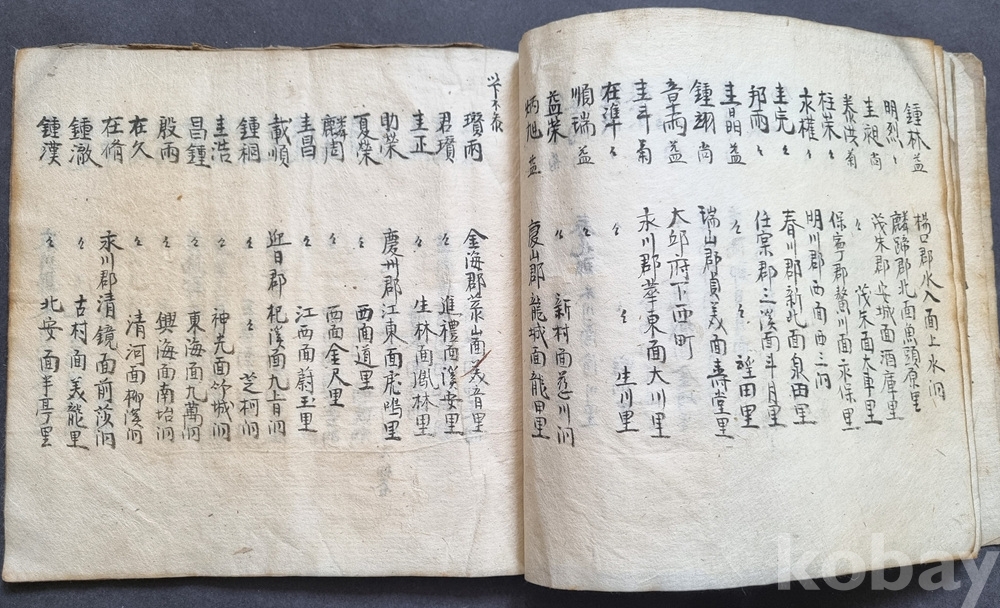 鍾林 益 楊口郡水入面上水洞
明烈 〻 麟蹄郡北面魚頭原里
圭昶 尙 茂朱郡安城面酒庫里
泰洪 菊 〻 茂朱面大車里
柱荣 〻 保寧郡鰲川面永保里
永權 〻 明川郡西面西三洞
圭完 〻 春川郡新北面泉田里
邦雨 〻 任實郡三溪面斗月里
圭晶 益 〻 〻 里
鍾翊 尙 瑞山郡貟美面壽堂里
章雨 益 大邱府下西町
圭斗 菊 永川郡華東面大川里
在準 〻 〻 〻 生川里
順瑞 益
益荣 〻 新村面 川洞
炳旭 益 慶山郡龍城面龍田里
以下不叅
瓚雨 金海郡菉山面美音里
君瓚 〻 進禮面溪安里
圭正 〻 生林面鳳林里
助荣 慶州郡江東面虎鳴里
夏荣 〻 西面道里
麟周 〻 西面金尺里
圭昌 〻 江西面蔚玉里
載順 迎日郡杞溪面九上洞
鍾桐 〻 〻 芝柯洞
圭浩 〻 神光面竹城洞
昌鍾 〻 東海面九萬洞
殷雨 〻 興海面南城洞
在久 〻 清河面柳溪洞
在脩 永川郡清鏡面前莎洞
鍾澈 〻 古村面美龍里
鍾漢 〻 北安面半亭里